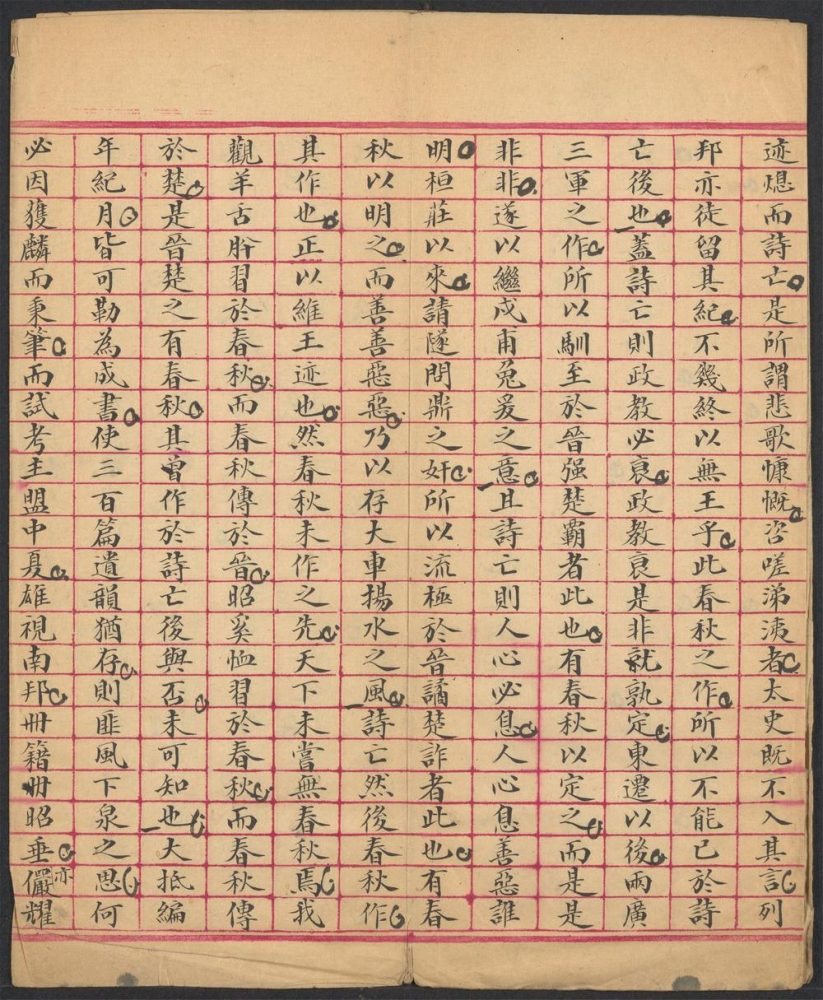 迹熄而詩亡是所謂悲歌慷慨咨嗟涕洟者太史既不入其言列
邦亦徒留其紀不幾終以無王乎此春秋之作所以不能已於詩
亡後也蓋詩亡則政教必衰政教衰是非就孰定東遷以後兩廣
三軍之作所以馴至於晉强楚霸者此也有春秋以定之而是是
非非遂以繼戍甫兔爰之意且詩亡則人心必息人心息善惡誰
明桓莊以來請隧問鼎之奸所以流極於晉譎楚詐者此也有春
秋以明之而善善惡惡乃以存大車揚水之風詩亡然後春秋作
其作也正以維王迹也然春秋未作之先天下未嘗無春秋焉我
觀羊舌肸習於春秋而春秋傳於晉昭奚恤習於春秋而春秋傳
於楚是晉楚之有春秋其曾作於詩亡後與否未可知也大抵編
年紀月皆可勒為成書使三百篇遺韻猶存則匪風下泉之思何
必因獲麟而秉筆而試考主盟中夏雄視南邦冊籍冊昭垂亦儼耀